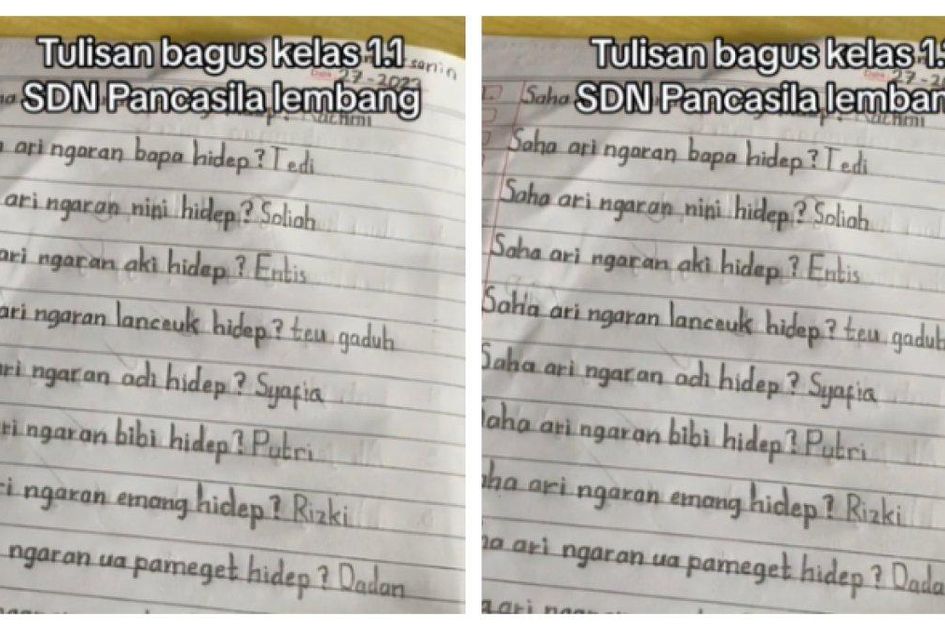 Tulisan bagus kelas 1.1
SDN Pancasila lembang
senin
27-2023
ari ngaran bapa hidep? Tedi
ari ngaran nini hidep? Soliah
ari ngaran aki hidep? Entis
ari ngaran lanceuk hidep? teu gaduh
ri ngaran adi hidep? Syafia
ri ngaran bibi hidep? Putri
i ngaran emang hidep? Rizki
ngaran ua pameget hidep? Dadan
Tulisan bagus kelas 1.
SDN Pancasila lembar
27-2
Saha
Saha ari ngaran bapa hidep? Tedi
Saha ari ngaran nini hidep? Soliah
Saha ari ngaran aki hidep? Entis
Saha ari ngaran lanceuk hidep? teu gaduh
Saha ari ngaran adi hidep? Syafia
aha ari ngaran bibi hidep? Putri
ha ari ngaran emang hidep? Rizki
a ari ngaran ua pameget hidep? Dada